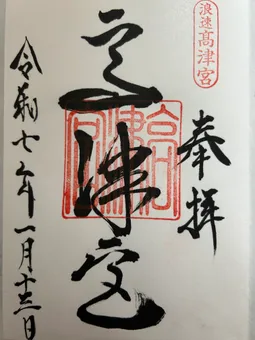 浪速
高津宮
奉拝
高津宮
高津宮
令和七年一月十三日